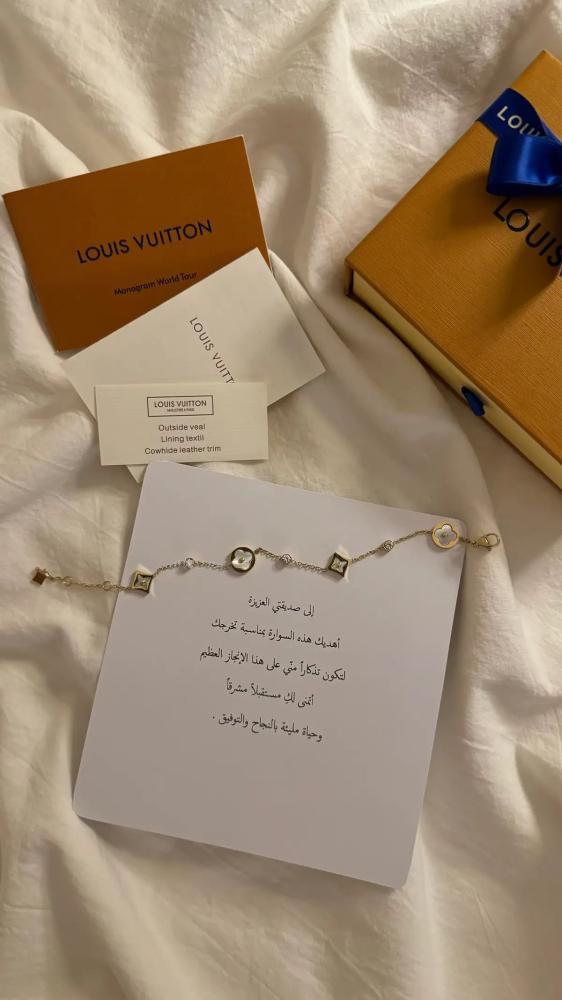 LOUIS VUITTON
Monogram World Tour
LOUIS VUITT
LOUIS VUITTON
Outside veal
Lining textil
Cowhide leather trim
LOU
LOUIS
إلى صديقتي العزيزة
أهديك هذه السوارة بمناسبة تخرجك
لتكون تذكاراً منّي على هذا الإنجاز العظيم
أتمنى لكِ مستقبلاً مشرقاً
وحياة مليئة بالنجاح والتوفيق .